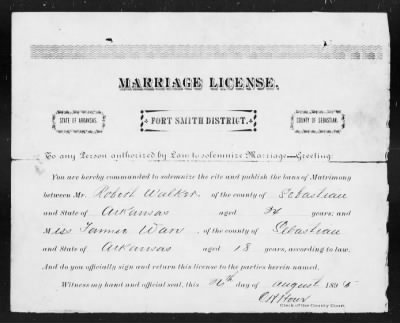 MARRIAGE LICENSE,
STATE OF ARKANSAS, FORT SMITH DISTRICT, COUNTY OF SEBASTIAN,
To any Person authorized by Law to solemnize Marriage—Greeting:
You are hereby commanded to solemnize the rite and publish the bans of Matrimony
between Mr. Robert Walker of the county of Sebastian
and State of Arkansas aged years; and
M iss Warr of the county of Sebastian
and State of Arkansas aged 18 years, according to law.
And do you officially sign and return this license to the parties herein named.
Witness my hand and official seal, this 26th day of August 189
Clerk of the County Court.